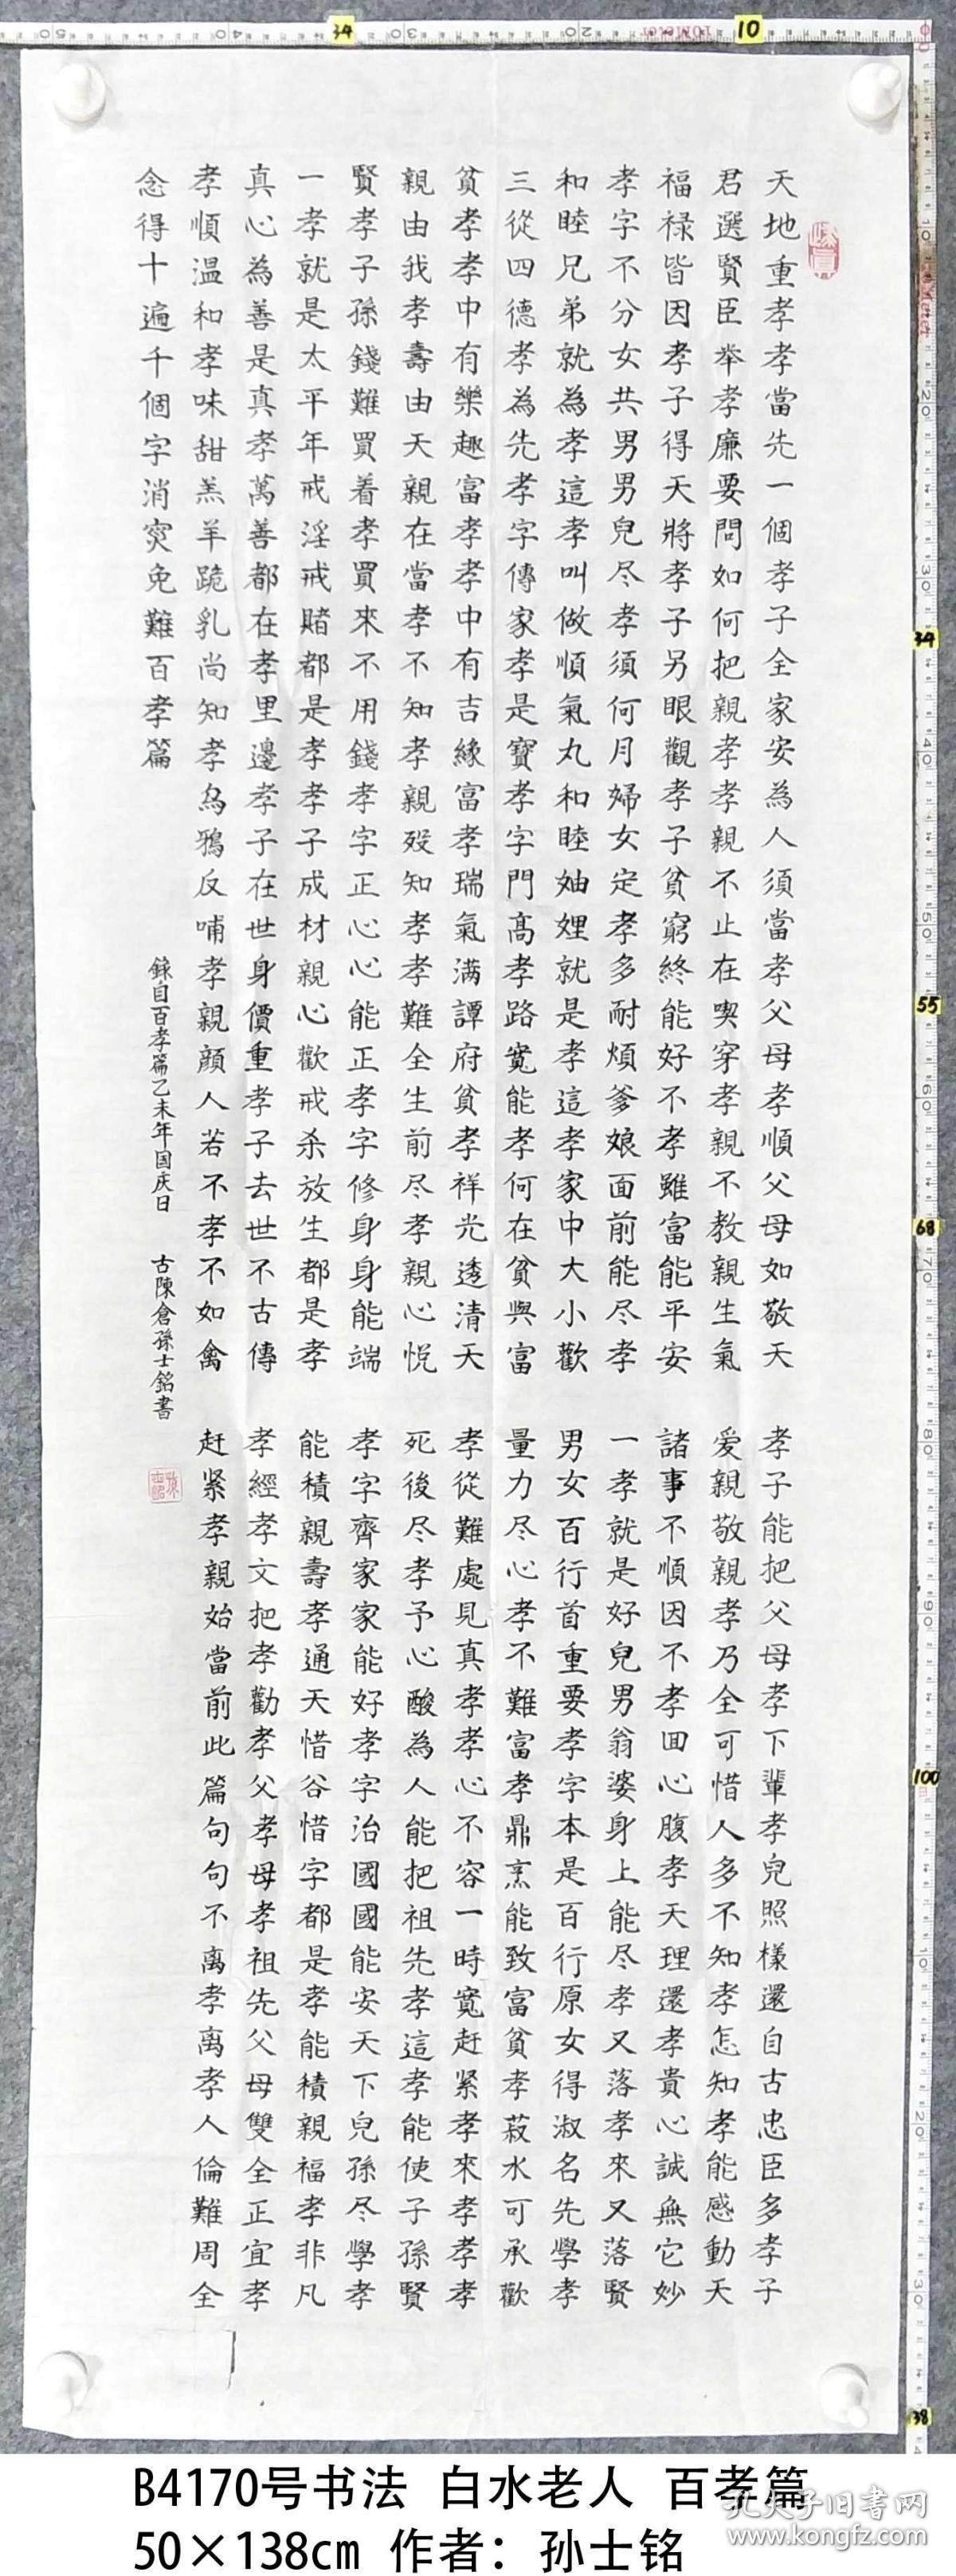 天地重孝孝當先一個孝子全家安為人須當孝父母孝順父母如敬天孝子能把父母孝下輩孝兒照樣還自古忠臣多孝子
君選賢臣舉孝廉要問如何把親孝孝親不止在喫穿孝親不教親生氣爱親敬親孝乃全可惜人多不知孝怎知孝能感動天
福禄皆因孝子得天將孝子另眼觀孝子貧窮終能好不孝雖富能平安諸事不順因不孝回心腹孝天理還孝貴心誠無它妙
孝字不分女共男男兒尽孝須何月婦女定孝多耐煩爹娘面前能尽孝一孝就是好兒男翁婆身上能尽孝又落孝來又落賢
和睦兄弟就為孝這孝叫做順氣丸和睦妯娌就是孝這孝家中大小歡男女百行首重要孝字本是百行原女得淑名先學孝
三從四德孝為先孝字傳家孝是寶孝字門髙孝路寬能孝何在貧與富量力尽心孝不難富孝鼎烹能致富貧孝菽水可承歡
貧孝孝中有樂趣富孝孝中有吉緣富孝瑞氣满譚府貧孝祥光透清天孝從難處見真孝孝心不容一時寬赶紧孝來孝孝孝
親由我孝壽由天親在當孝不知孝親殁知孝孝難全生前尽孝親心悦死後尽孝予心酸為人能把祖先孝這孝能使子孫賢
賢孝子孫錢難買着孝買來不用錢孝字正心心能正孝字修身身能端孝字齊家家能好孝字治國國能安天下兒孫尽學孝
一孝就是太平年戒淫戒賭都是孝孝子成材親心歡戒杀放生都是孝能積親壽孝通天惜谷惜字都是孝能積親福孝非凡
真心為善是真孝萬善都在孝里邊孝子在世身價重孝子去世不古傳孝經孝文把孝勸孝父孝母孝祖先父母雙全正宜孝
孝順温和孝味甜羔羊跪乳尚知孝烏鴉反哺孝親顔人若不孝不如禽赶紧孝親始當前此篇句句不离孝离孝人倫難周全
念得十遍千個字消灾免難百孝篇
録自百孝篇乙未年国庆日 古陳倉孫士銘書
B4170号书法 白水老人 百孝篇
50×138cm 作者：孙士铭
孔夫子旧书网
www.kongfz.com